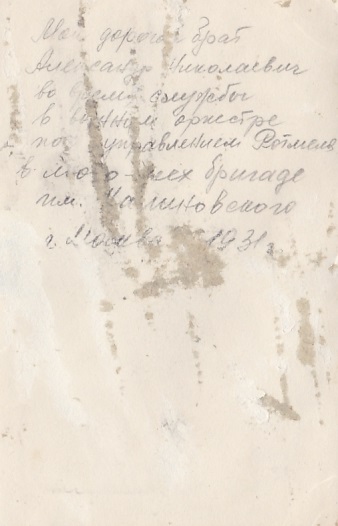 Мой дорогой брат
Александр Николаевич
во время службы
в военном оркестре
под управлением
в мото-мех бригаде
им. Калиновского
г. Москва 1931 г.